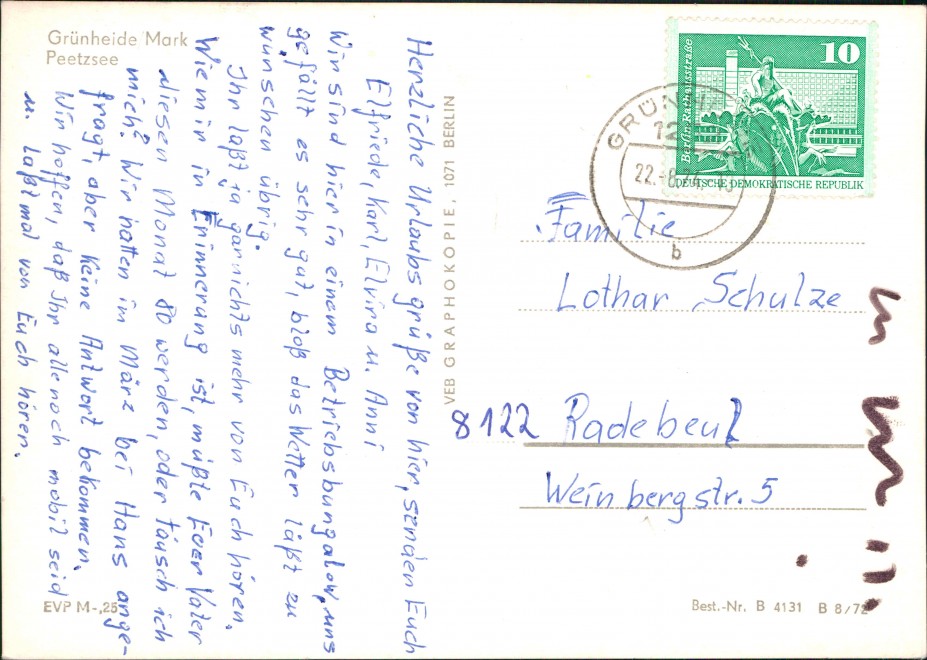 Grünheide Mark
Peetzsee
Herzliche Urlaubsgrüße von hier, senden Euch
Elfriede, Karl, Elvira u. Anni
Wir sind hier in einem Betriebsbungalow, uns
gefällt es sehr gut, bloß das Wetter läßt zu
wünschen übrig.
Ihr laßt ja garnichts mehr von Euch hören.
Wie mir in Erinnerung ist, müßte Euer Vater
diesen Monat 80 werden, oder täusch ich
mich? Wir hatten im März bei Hans ange-
fragt, aber keine Antwort bekommen.
Wir hoffen, daß Ihr alle noch mobil seid
u. laßt mal von Euch hören.
EVP M -,25
VEB GRAPHOKOPIE, 1071 BERLIN
10
Berlin, Rathausstraße
DEUTSCHE DEMOKRATISCHE REPUBLIK
22.-8.
b
Familie
Lothar Schulze
8122 Radebeul
Weinbergstr. 5
Best.-Nr. B 4131 B 8/72